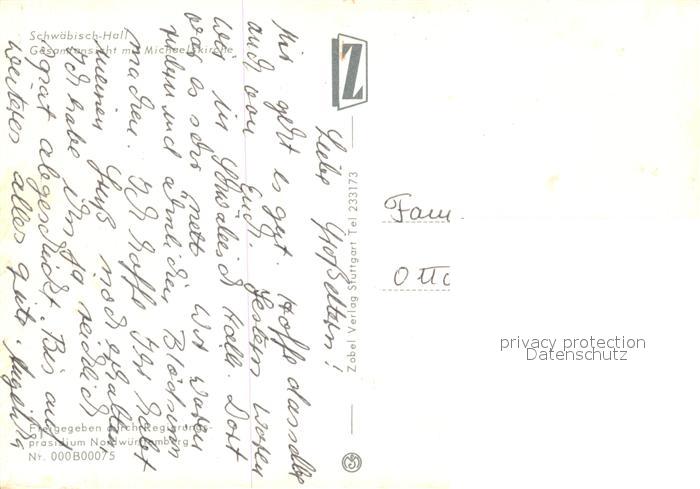 Schwäbisch-Hall
Gesamtansicht mit Michaelskirche
Liebe Großeltern!
Mir geht es gut. Hoffe dasselbe
auch von Euch. Gestern waren
wir in Schwäbisch Hall. Dort
war es sehr nett. Wir waren
rudern und ähnlichen Blödsinn
machen. Ich hoffe Ihr habt
meinen Gruß noch erhalten
Ich habe ihn ja reichlich
spät abgeschickt. Bis auf
weiteres alles gute.
Freigegeben durch Regierungs-
präsidium Nordwürttemberg
Nr. 000B00075
Z
Zobel Verlag Stuttgart Tel 233173
Fam.
Otto
privacy protection
Datenschutz